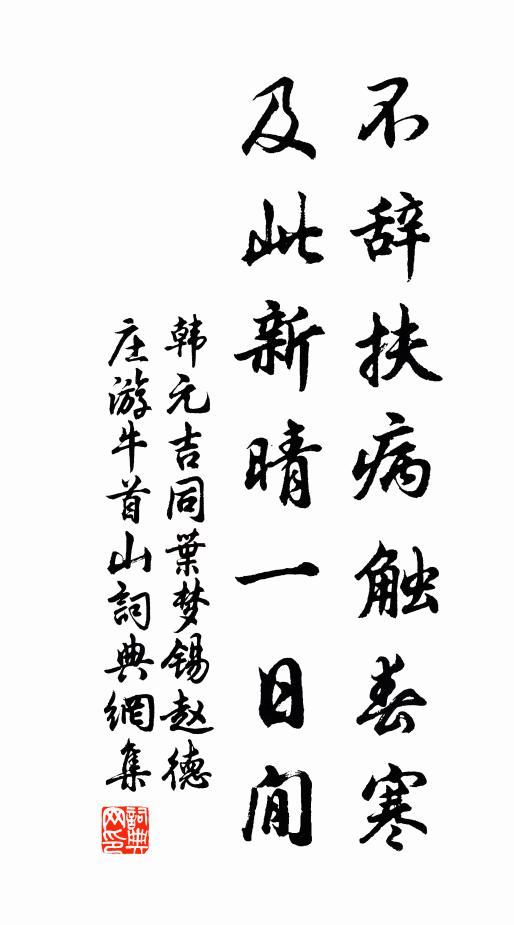 不辞扶病触春寒
及此新晴一日间
韩元吉同葉梦锡赵德
庄游牛首山詞典網集
詞典网印